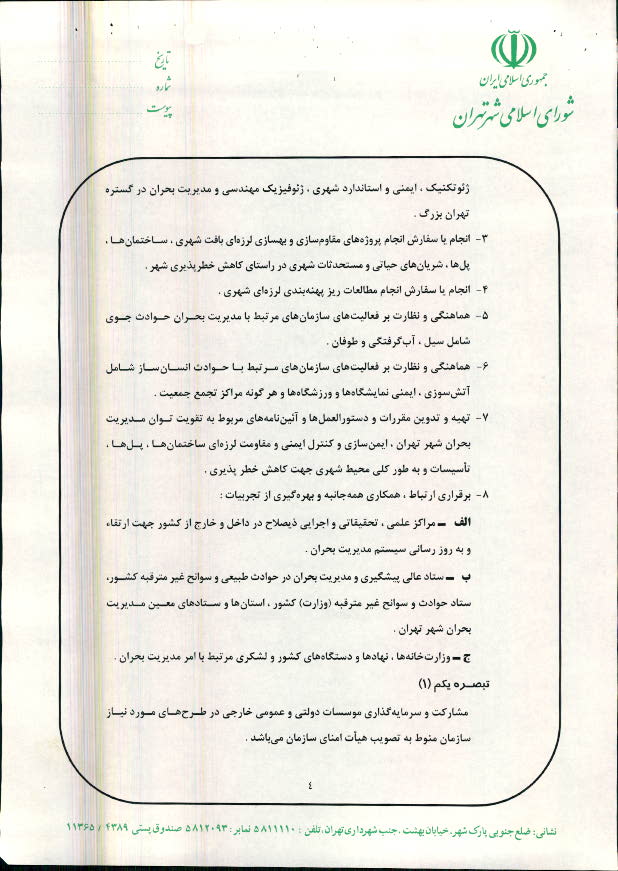 جمهوری اسلامی ایران
شورای اسلامی شهر تهران
تاریخ
شماره
پیوست
ژئوتکنیک ، ایمنی و استاندارد شهری ، ژئوفیزیک مهندسی و مدیریت بحران در گستره
تهران بزرگ .
۳- انجام یا سفارش انجام پروژه‌های مقاوم‌سازی و بهسازی لرزه‌ای بافت شهری ، ساختمان‌ها ،
پل‌ها ، شریان‌های حیاتی و مستحدثات شهری در راستای کاهش خطرپذیری شهر .
۴- انجام یا سفارش انجام مطالعات ریز پهنه‌بندی لرزه‌ای شهری .
۵- هماهنگی و نظارت بر فعالیت‌های سازمان‌های مرتبط با مدیریت بحران حوادث جوی
شامل سیل ، آب‌گرفتگی و طوفان .
۶- هماهنگی و نظارت بر فعالیت‌های سازمان‌های مرتبط با حوادث انسان‌ساز شامل
آتش‌سوزی ، ایمنی نمایشگاه‌ها و ورزشگاه‌ها و هر گونه مراکز تجمع جمعیت .
۷- تهیه و تدوین مقررات و دستورالعمل‌ها و آئین‌نامه‌های مربوط به تقویت توان مدیریت
بحران شهر تهران ، ایمن‌سازی و کنترل ایمنی و مقاومت لرزه‌ای ساختمان‌ها ، پل‌ها ،
تأسیسات و به طور کلی محیط شهری جهت کاهش خطر پذیری .
۸- برقراری ارتباط ، همکاری همه‌جانبه و بهره‌گیری از تجربیات :
الف – مراکز علمی ، تحقیقاتی و اجرایی ذیصلاح در داخل و خارج از کشور جهت ارتقاء
و به روز رسانی سیستم مدیریت بحران .
ب – ستاد عالی پیشگیری و مدیریت بحران در حوادث طبیعی و سوانح غیر مترقبه کشور،
ستاد حوادث و سوانح غیر مترقبه (وزارت) کشور ، استان‌ها و ستادهای معین مدیریت
بحران شهر تهران .
ج – وزارت‌خانه‌ها ، نهادها و دستگاه‌های کشور و لشکری مرتبط با امر مدیریت بحران .
تبصره یکم (۱)
مشارکت و سرمایه‌گذاری موسسات دولتی و عمومی خارجی در طرح‌های مورد نیاز
سازمان منوط به تصویب هیأت امنای سازمان می‌باشد .
٤
نشانی: ضلع جنوبی پارک شهر، خیابان بهشت، جنب شهرداری تهران، تلفن : ۵۸۱۱۱۱۰ نمابر : ۵۸۱۲۰۹۳ صندوق پستی ۴۳۸۹ / ۱۱۳۶۵